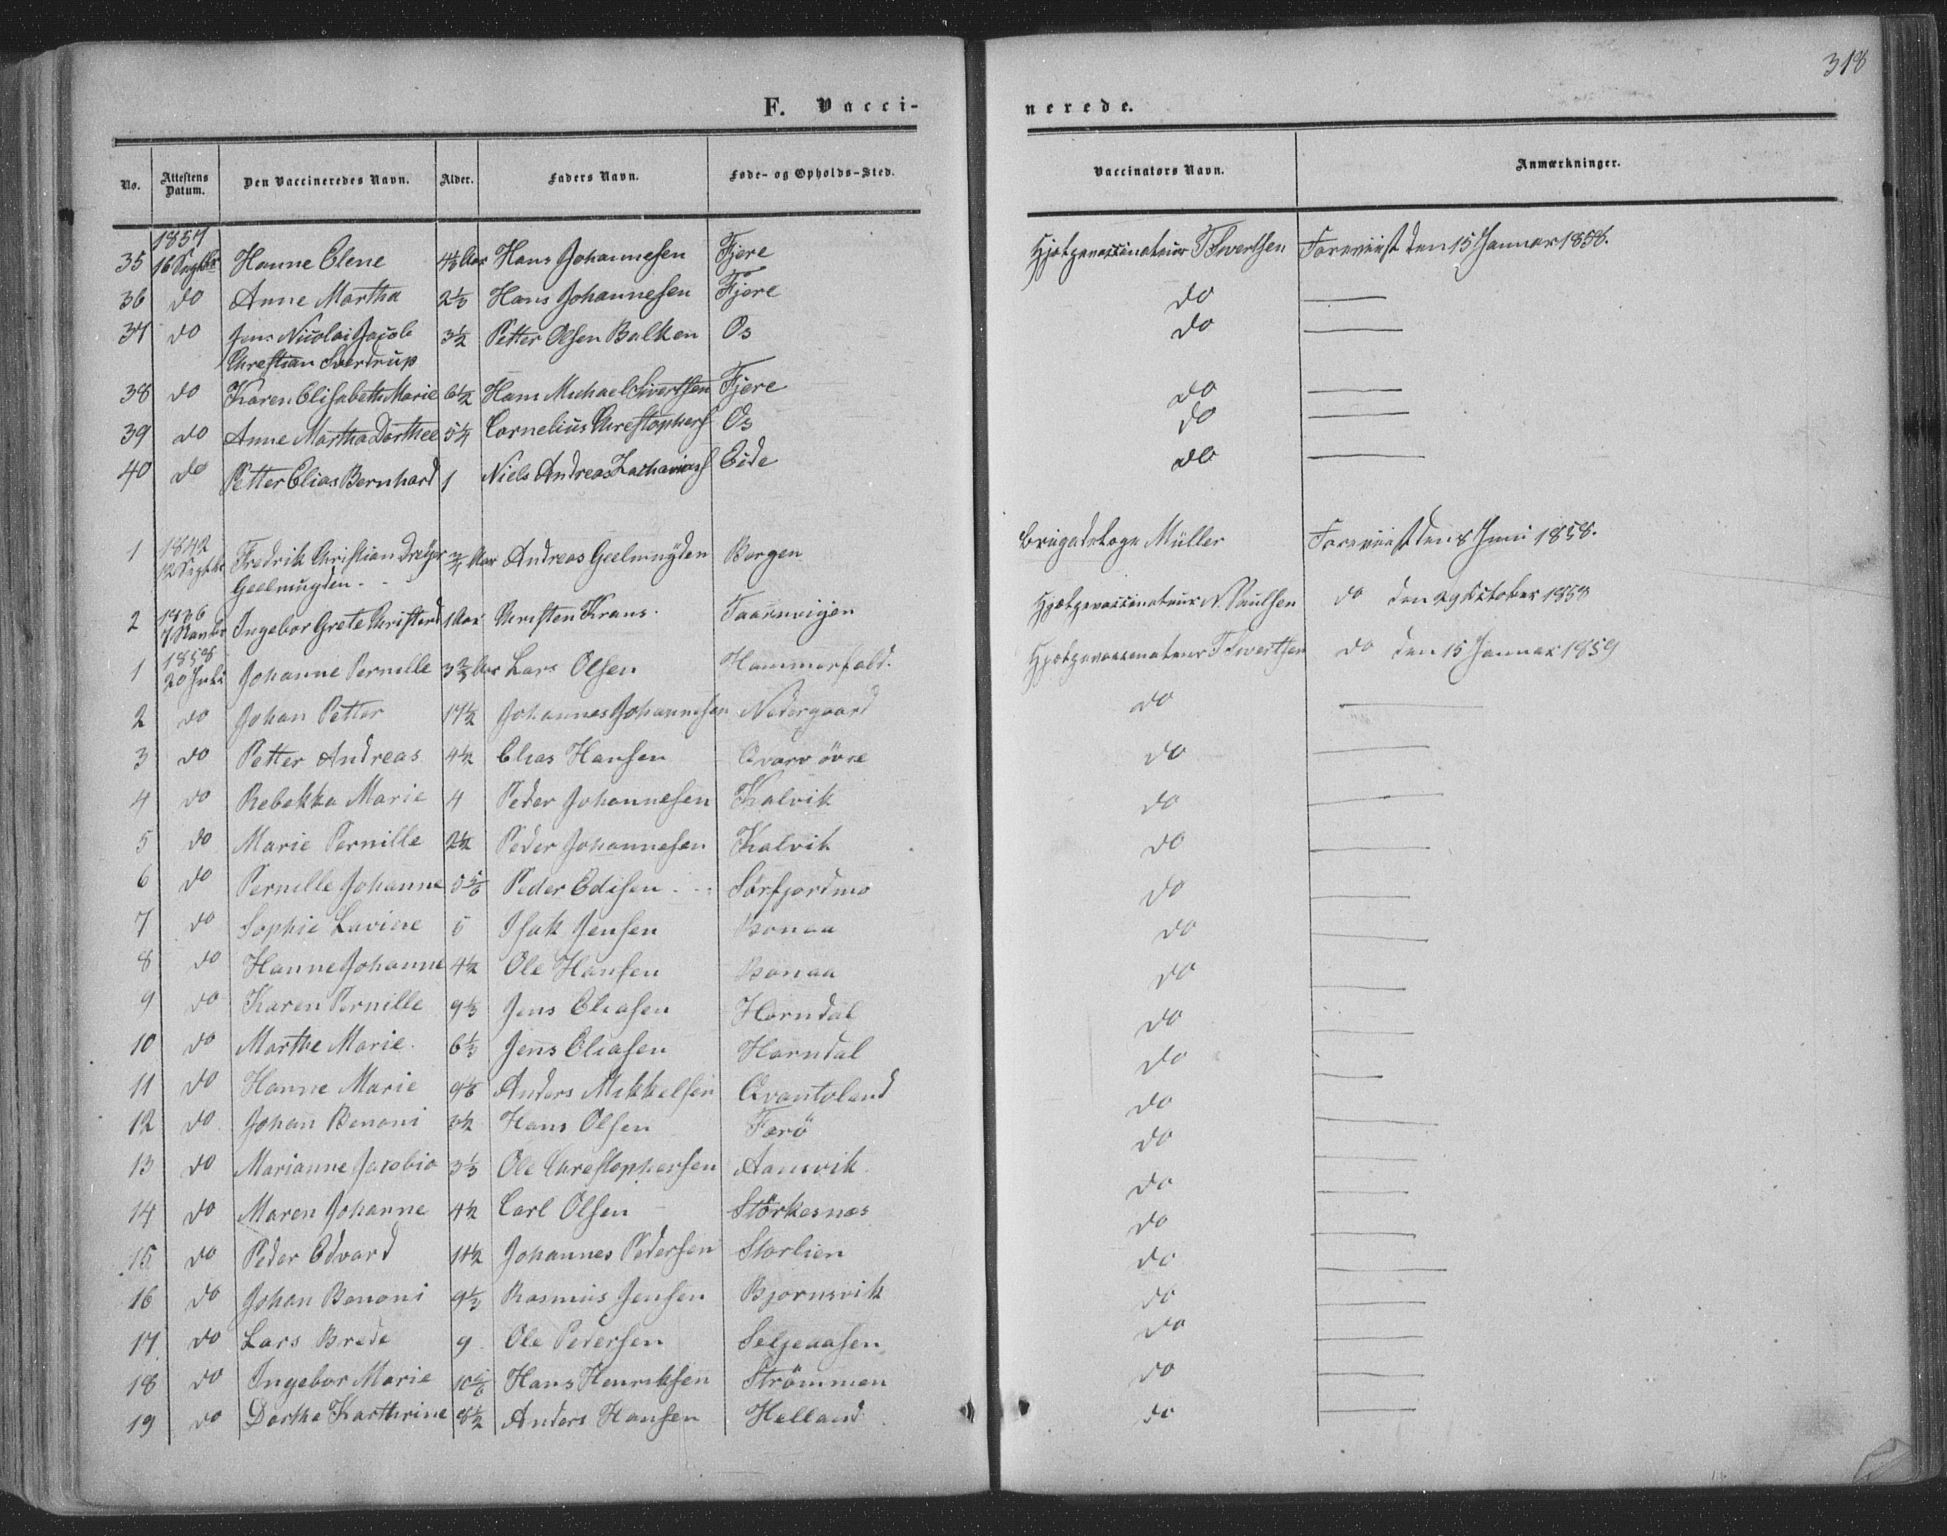 318
F. Vacci-
nerede.
No. Attestens Datum. Den Vaccineredes Navn. Alder. Faders Navn. Føde- og Opholds-Sted. Vaccinators Navn. Anmærkninger.
1857
35 16 Septbr Hanne Elene 4⅓ Aar Hans Johannesen Fjære Hjelpevaccinateur T Sivertsen Foreviist den 15 Januar 1858.
36 do Anne Martha 2⅓ Hans Johannesen Fjære do
37 do Jens Nicolai Jacob 3½ Petter Olsen Balken Os do
Christian Sverdrup
38 do Karen Elisabeth Marie 6½ Hans Michael Sivertsen Fjære do
39 do Anne Martha Dorthee 5¼ Cornelius Christophers Os do
40 do Petter Elias Bernhard 1 Niels Andreas Zacharias Eide do
1842
1 12 Septbr Fredrik Christian Dreyer ¾ Aar Andreas Geelmuyden Bergen Brigadelæge Müller Foreviist den 8 Juni 1858.
Geelmuyden
1836
2 Ingebor Grete Christensd 1 Aar Christen Krans. Taarnvigen Hjelpevaccinateur N. Paulsen do den 29 October 1858
1858
1 20 Juli Johanne Pernille 3⅔ Aar Lars Olsen Hammerfald. Hjelpevaccinateur T Sivertsen do den 15 Januar 1859
2 do Johan Petter 17½ Johannes Johannesen Nedergaard do
3 do Petter Andreas 4½ Elias Hansen Qvarv øvre do
4 do Rebekka Marie 4 Peder Johannesen Kalvik do
5 do Marie Pernille 2½ Peder Johannesen Kalvik do
6 do Pernille Johanne Peder Edisen Sørfjordmo do
7 do Sophie Lavine 5 Isak Jensen Bonaa do
8 do Hanne Johanne 4½ Ole Hansen Bonaa do
9 do Karen Pernille 9⅓ Jens Eliasen Horndal do
10 do Marthe Marie. 6⅓ Jens Eliasen Horndal do
11 do Hanne Marie Anders Mikkelsen Qvantoland do
12 do Johan Benoni 3½ Hans Olsen Færø do
13 do Marianne Jacobia 3⅓ Ole Christophersen Aansvik do
14 do Maren Johanne 4½ Carl Olsen Størkesnæs do
15 do Peder Edvard 11½ Johannes Pedersen Storlien do
16 do Johan Benoni 9⅓ Rasmus Jensen Bjørnsvik do
17 do Lars Brede 9 Ole Pedersen Seljeaasen do
18 do Ingebor Marie Hans Henriksen Strømmen do
19 do Dorthe Kathrine 8½ Anders Hansen Helland do